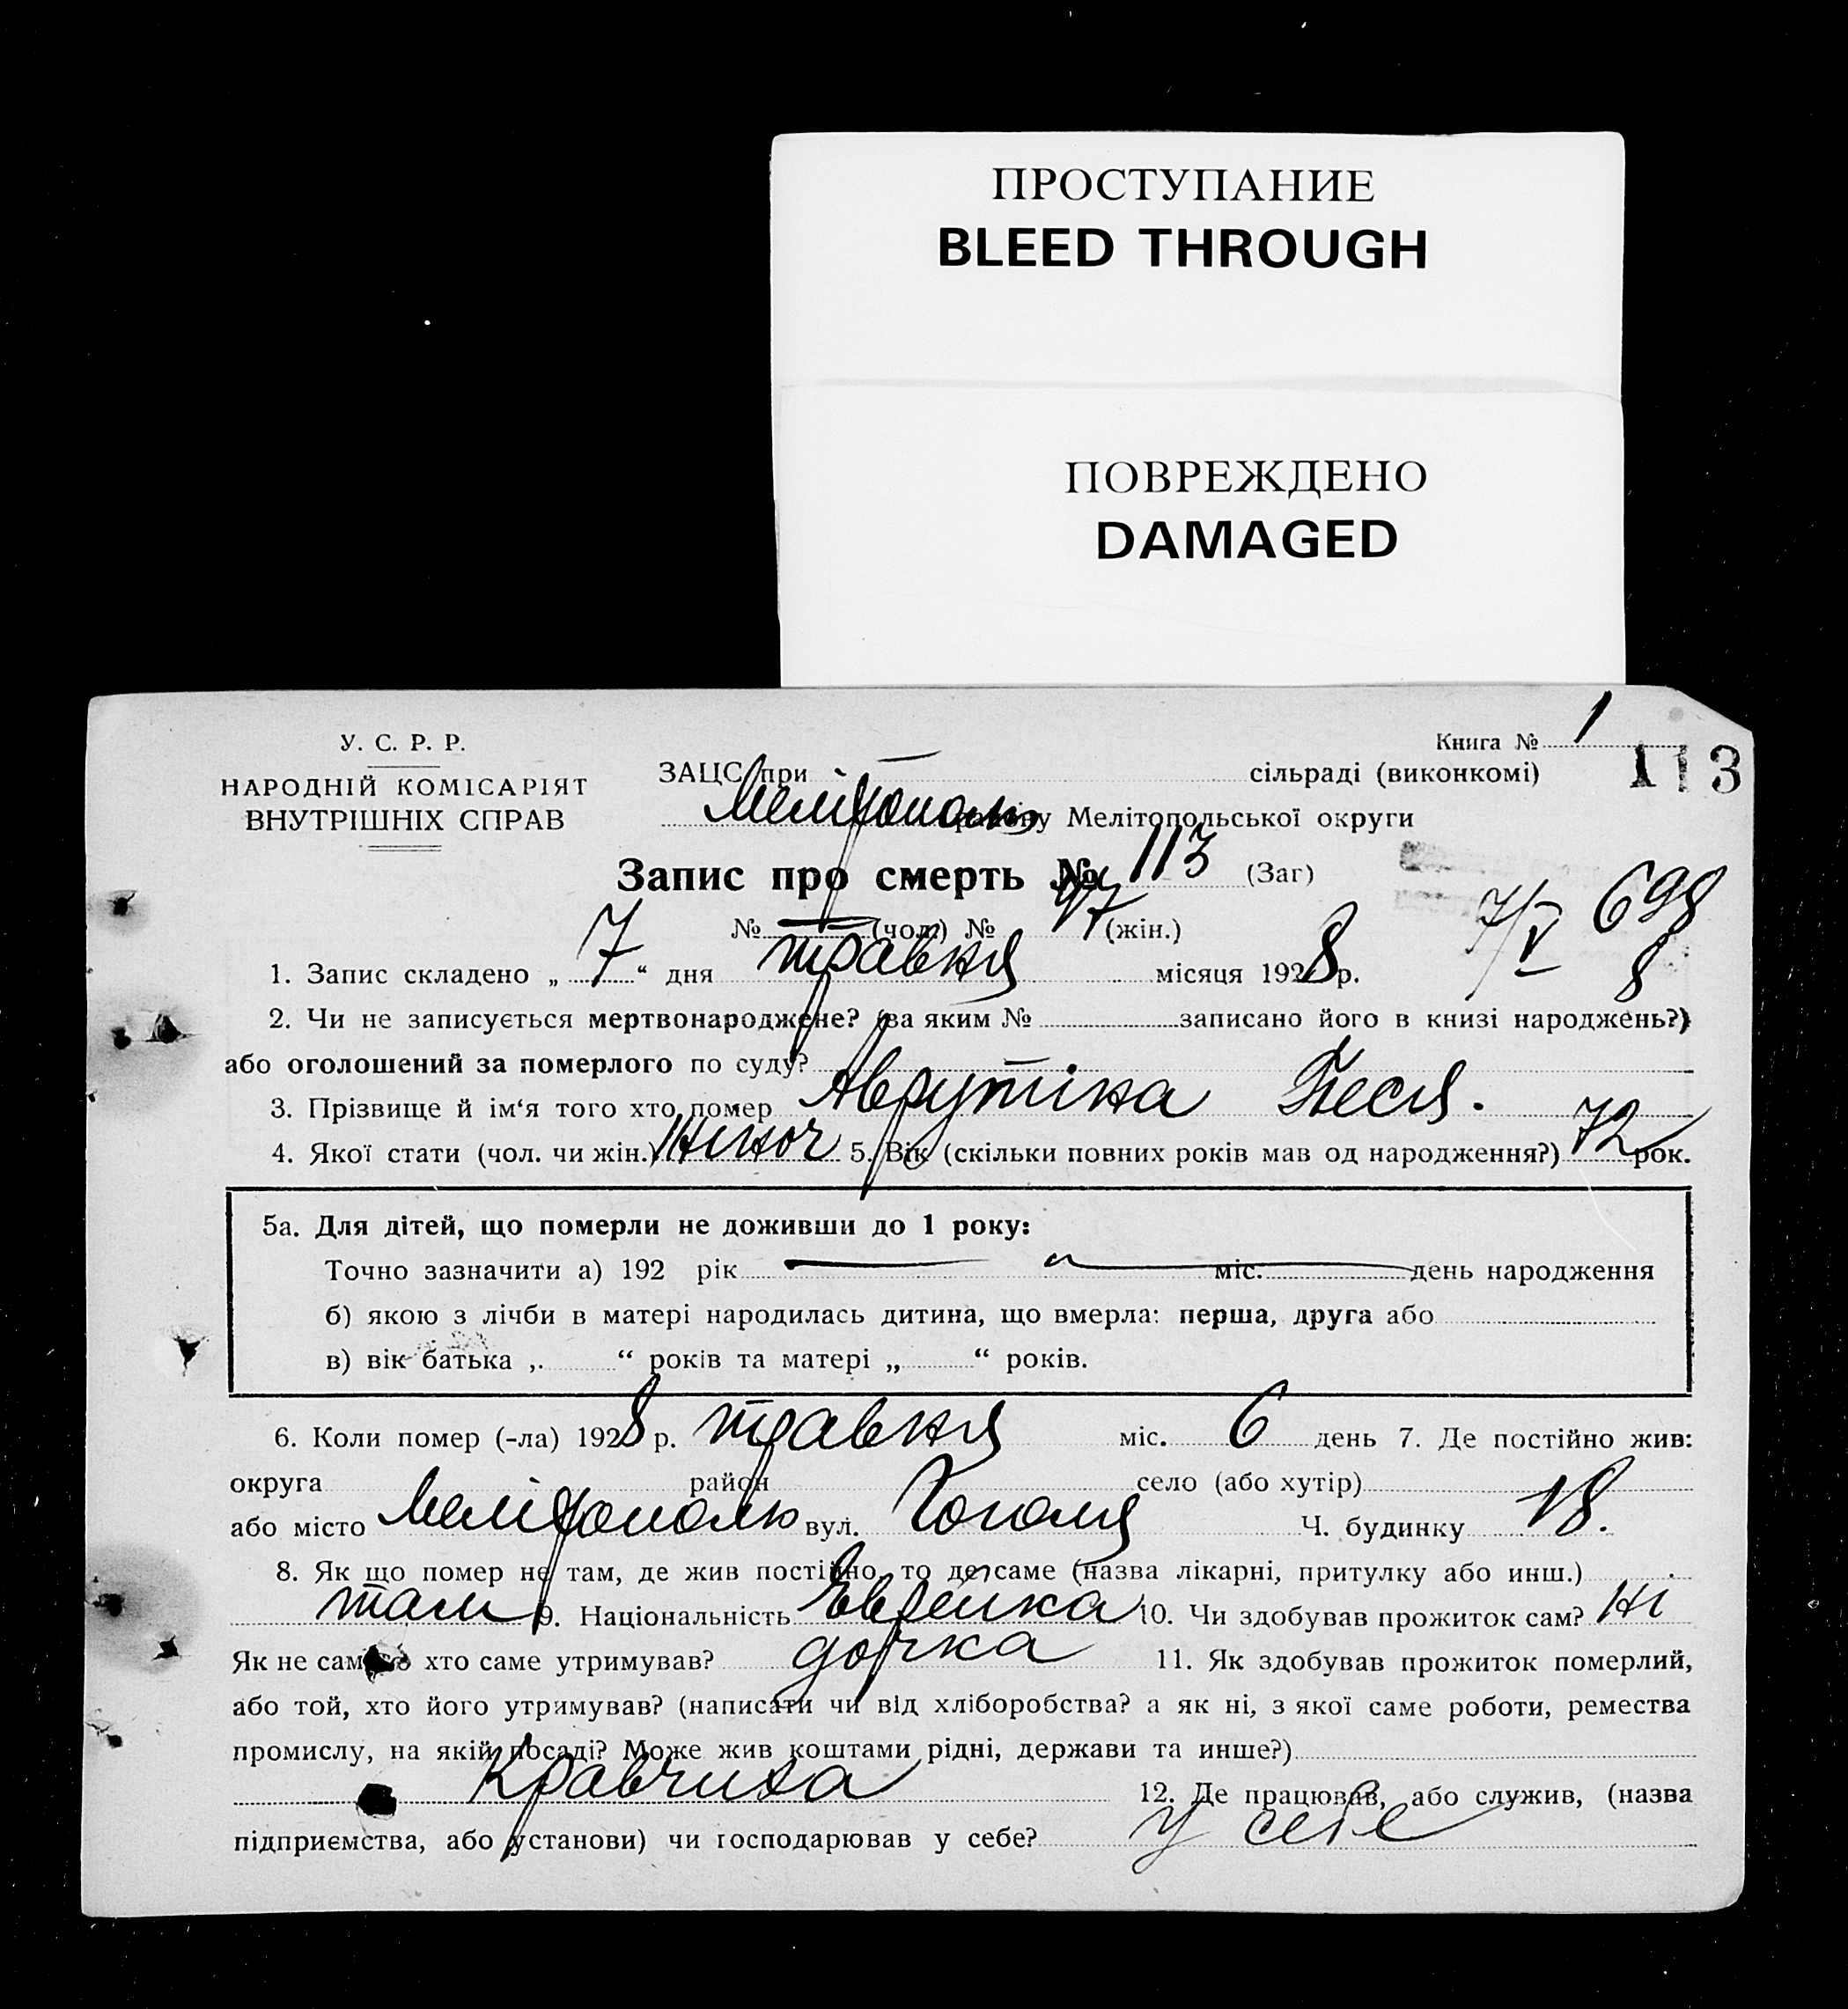 ПРОСТУПАНИЕ
BLEED THROUGH
ПОВРЕЖДЕНО
DAMAGED
Книга № 1
113
У. С. Р. Р.
НАРОДНІЙ КОМІСАРІЯТ
ВНУТРІШНІХ СПРАВ
ЗАЦС при — сільраді (виконкомі)
Мелітополь району Мелітопольської округи
Запис про смерть № 113 (Заг)
№ — (чол.) № 47 (жін.)
7/V 698
8
1. Запис складено „ 7 “ дня травня місяця 1928 р.
2. Чи не записується мертвонароджене? (за яким № записано його в книзі народжень?)
або оголошений за померлого по суду? —
3. Прізвище й ім‘я того хто помер Аврутіна Песя.
4. Якої стати (чол. чи жін.) жіноч 5. Вік (скільки повних років мав од народження?) 72 рок.
5а. Для дітей, що померли не доживши до 1 року:
Точно зазначити а) 192 рік — міс. — день народження
б) якою з лічби в матері народилась дитина, що вмерла: перша, друга або
в) вік батька „ “ років та матері „ “ років.
6. Коли помер (-ла) 1928 р. травня міс. 6 день 7. Де постійно жив:
округа район село (або хутір)
або місто Мелітополь вул. Гоголя Ч. будинку 18.
8. Як що помер не там, де жив постійно, то де саме (назва лікарні, притулку або инш.)
там 9. Національність Еврейка 10. Чи здобував прожиток сам? Ні
Як не сам то хто саме утримував? дочка 11. Як здобував прожиток померлий,
або той, хто його утримував? (написати чи від хліборобства? а як ні, з якої саме роботи, ремества
промислу, на якій посаді? Може жив коштами рідні, держави та инше?)
Кравчиха 12. Де працював, або служив, (назва
підприємства, або установи) чи господарював у себе? У себе